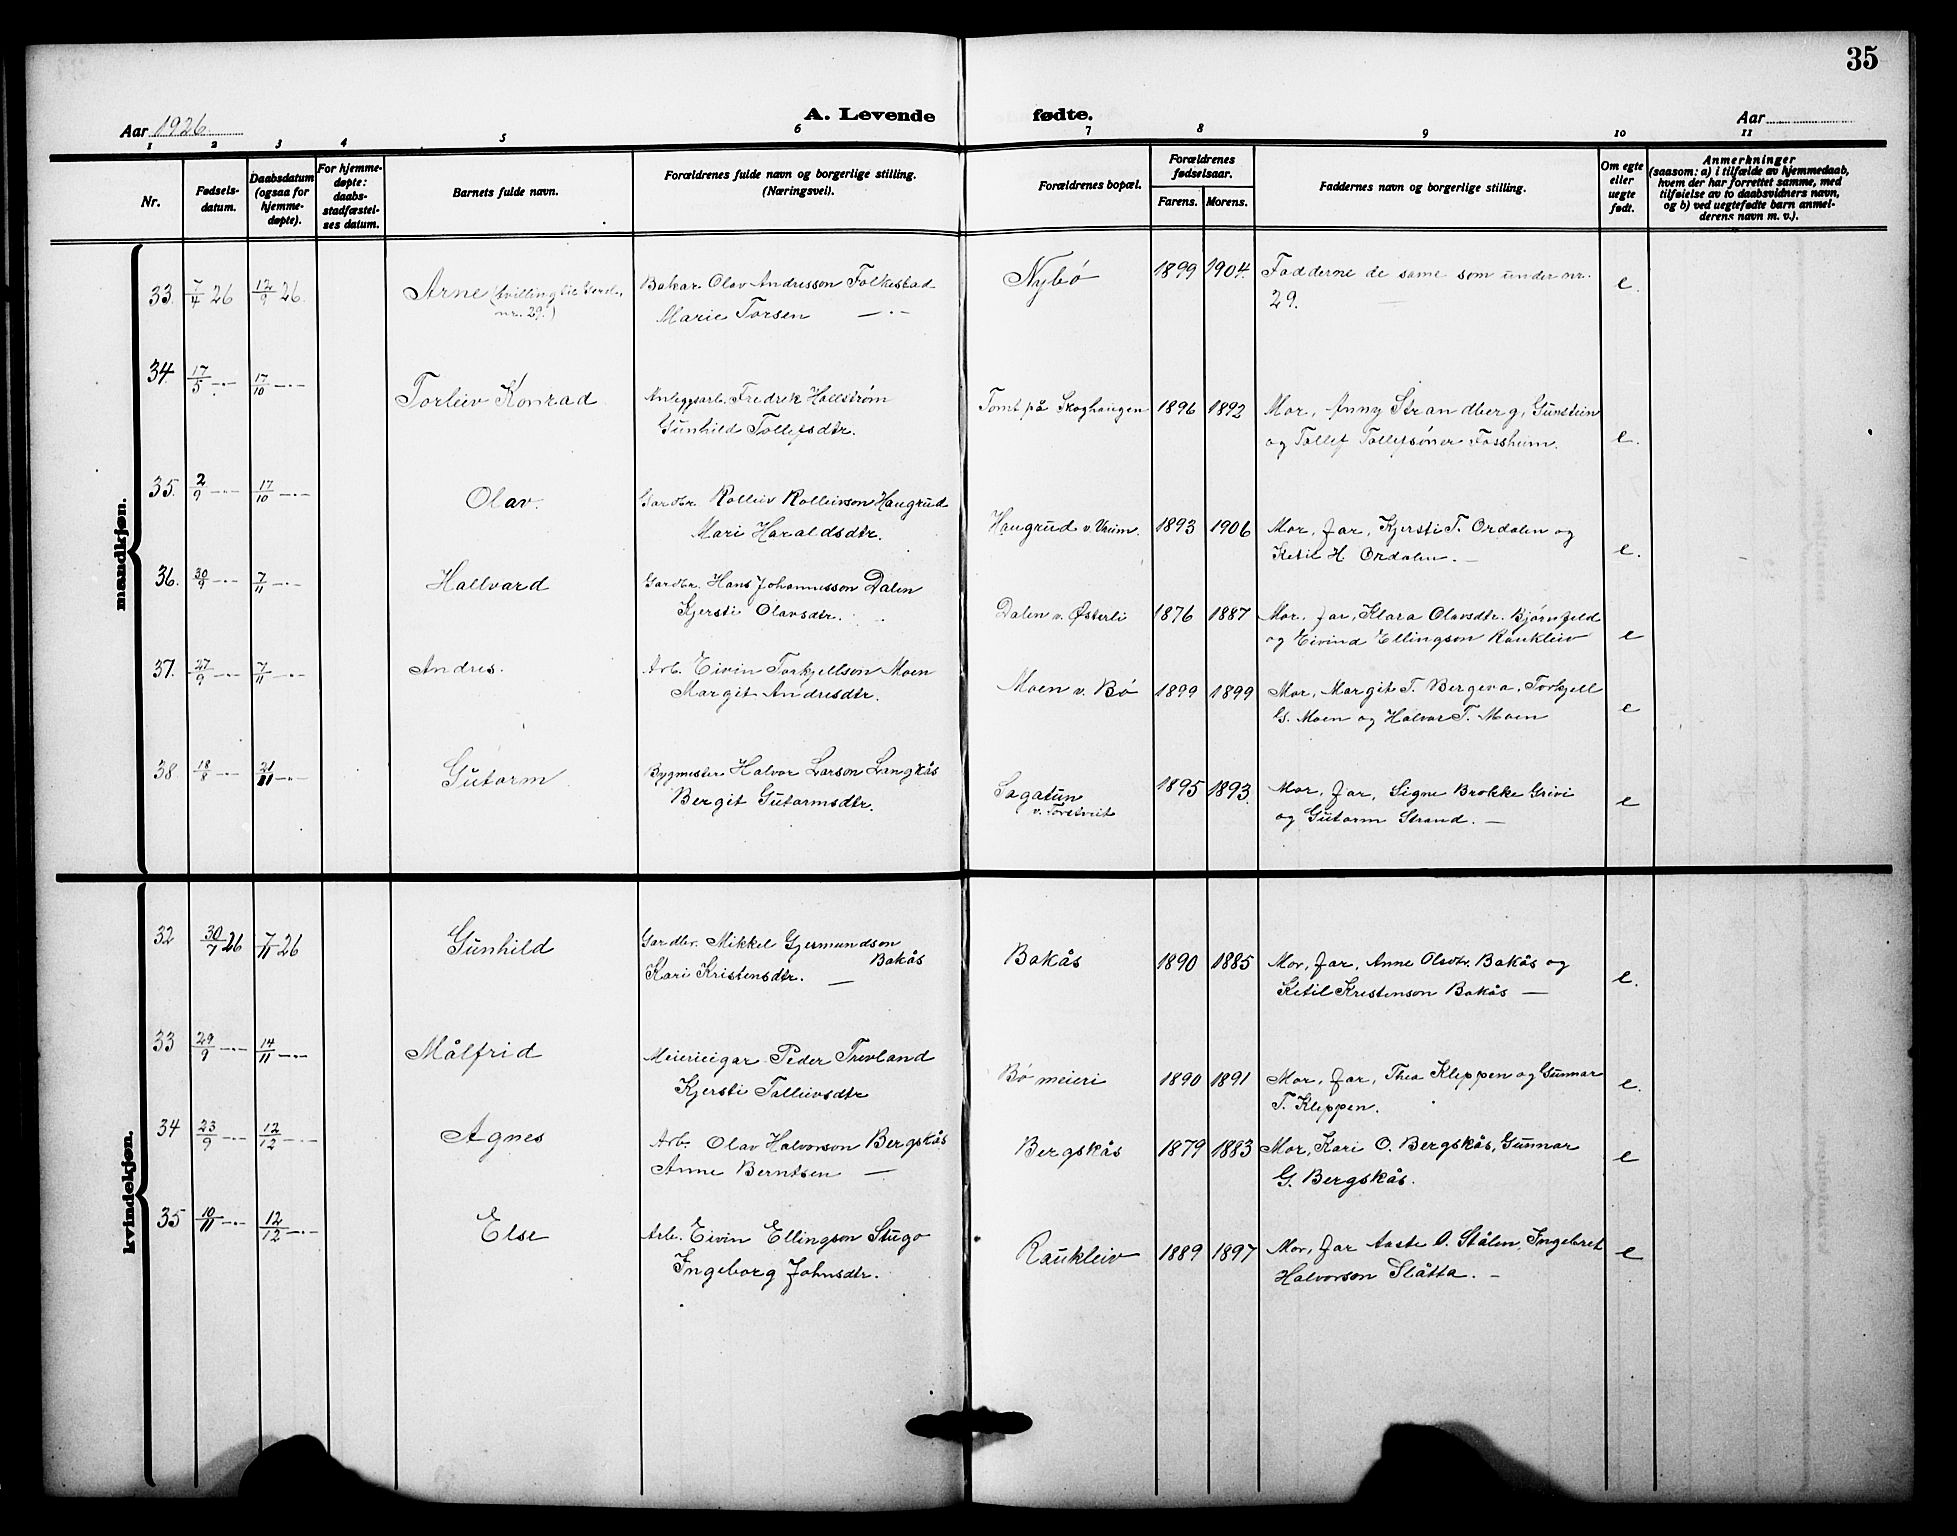 35
A. Levende fødte.
Aar 1926
Aar
1 2 3 4 5 6 7 8 9 10 11
Nr.
Fødsels-
datum.
Daabsdatum
(ogsaa for
hjemme-
døpte).
For hjemme-
døpte:
daabs-
stadfæstel-
ses datum.
Barnets fulde navn.
Forældrenes fulde navn og borgerlige stilling.
(Næringsvei).
Forældrenes bopæl.
Forældrenes
fødselsaar.
Farens. Morens.
Faddernes navn og borgerlige stilling.
Om egte
eller
uegte
født.
Anmerkninger
(saasom: a) i tilfælde av hjemmedaab,
hvem der har forrettet samme, med
tilføielse av to daabsvidners navn,
og b) ved uegtefødte barn anmel-
derens navn m. v.).
mandkjøn.
33. 7/4 26 12/9 26. Arne (tvilling til
nr. 29.)
Bakar Olav Andresson Folkestad
Marie Torsen —·—
Nybø 1899 1904. Fadderne de same som under nr.
29. e.
34. 17/5 —·— 17/10 —·— Torleiv Konrad
Anleggsarb. Fredrik Hallstrøm
Gunhild Tollefsdtr.
Tomt på Skoghaugen 1896 1892 Mor, Anny Strandberg, Gunstein
og Tallef Tallefsöner Fossheim. e.
35. 2/9 —·— 17/10 —·— Olav.
Gardbr. Rolleiv Rolleivson Haugrud
Mari Haraldsdtr.
Haugrud v. Vreim. 1893 1906 Mor, far, Kjersti T. Ordalen og
Ketil H Ordalen. — e.
36. 30/9 —·— 7/11 —·— Hallvard
Gardbr. Hans Johannesson Dalen
Kjersti Olavsdtr.
Dalen v. Østerli 1876 1887 Mor, far, Klara Olavsdtr. Bjørnfjeld
og Eivind Ellingson Raukleiv e
37. 27/9 —·— 7/11 —·— Andres.
Arb. Eivin Torkjellson Moen
Margit Andresdtr.
Moen v. Bö 1899 1899 Mor, Margit T. Bergeva, Torkjell
G. Moen og Halvor T. Moen e
38 18/8 —·— 21/11 —·— Gutorm
Bygmester Halvor Larson Langkås
Bergit Gutormsdtr.
Sagatun
v. Torstveit 1895 1893. Mor, far, Signe Brokke Grivi
og Gutorm Strand. — e
kvindekjøn.
32 30/7 26 7/11 26 Gunhild
Gardbr. Mikkel Gjermundson
Bakås
Kari Kristensdtr. —
Bakås 1890 1885 Mor, far, Anne Olsdtr. Bakås og
Ketil Kristenson Bakås — e.
33 29/9 —·— 14/11 —·— Målfrid
Meierieigar Peder Trevland
Kjersti Talleivsdtr
Bö meieri 1890 1891 Mor, far, Thea Kleppen og Gunnar
T. Kleppen. e.
34 23/9 —·— 12/12 —·— Agnes
Arb. Olav Halvorson Bergskås
Anne Berntsen —
Bergskås 1879 1883 Mor, Kari O. Bergskås, Gunnar
G. Bergskås. e
35 10/11 —·— 12/12 —·— Else
Arb. Eivin Ellingson Stugo
Ingeborg Johnsdtr.
Raukleiv 1889 1897 Mor, far Aaste O. Stålen, Ingebret
Halvorson Slåtta. — e